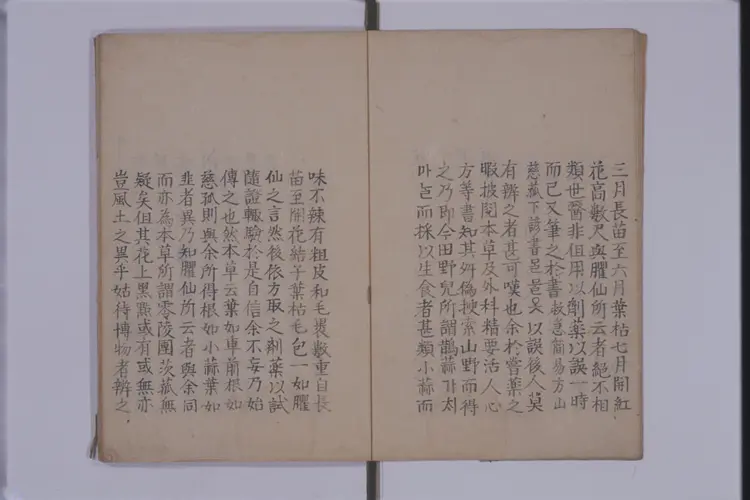 三月長苗至六月葉枯七月開紅
花高數尺與臞仙所云者絕不相
類世醫非但用以劑藥以誤一時
而已又筆之於書救急簡易方山
慈菰下諺書以誤後人莫
有辨之者甚可嘆也余於嘗藥之
暇披閱本草及外科精要活人心
方等書知其舛偽搜索山野而得
之乃即今田野兒所謂鵲蒜가
마而採以生食者甚類小蒜而
味不辣有粗皮和毛裹數重自長
苗至開花結子葉枯毛包一如臞
仙之言然後依方取之劑藥以試
隨證輒驗於是自信余不妄乃始
傳之也然本草云葉如車前根如
慈菰則與余所得根如小蒜葉如
韭者異乃知臞仙所云者與余同
而亦為本草所謂零陵團茨菰無
疑矣但其花上黑點或有或無亦
豈風土之異乎姑待博物者辨之